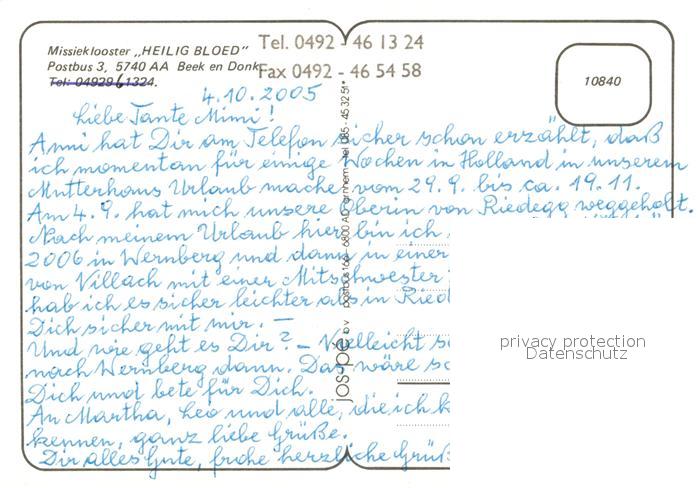 Missieklooster „HEILIG BLOED”
Postbus 3, 5740 AA Beek en Donk
Tel: 04929 6 1324.
Tel. 0492 - 46 13 24
Fax 0492 - 46 54 58
10840
4.10.2005
Liebe Tante Mimi!
Anni hat Dir am Telefon sicher schon erzählt, daß
ich momentan für einige Wochen in Holland in unserem
Mutterhaus Urlaub mache vom 29.9. bis ca. 19.11.
Am 4.9. hat mich unsere Oberin von Riedegg weggeholt.
Nach meinem Urlaub hier bin ich
2006 in Wernberg und dann in einer
von Villach mit einer Mitschwester
hab ich es sicher leichter als in Ried
Dich sicher mit mir. —
Und wie geht es Dir? — Vielleicht
nach Wernberg dann. Das wäre
Dich und bete für Dich.
An Martha, Leo und alle, die ich
kennen, ganz liebe Grüße.
Dir alles Gute, frohe herzliche Grüß
jos-pe b.v. postbus 166 - 6800 AD arnhem - tel. 085 - 45 32 51*
privacy protection
Datenschutz